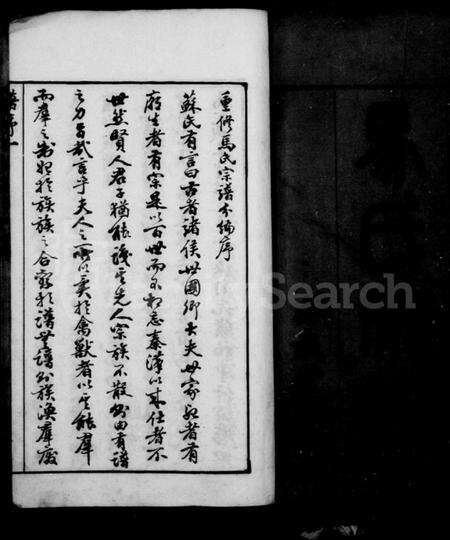 重修馬氏宗譜分編序
蘇氏有言曰古者諸侯世國卿大夫世家死者有
廟生者有宗是以百世而不相忘秦漢以來仕者不
世然賢人君子猶能識其先人宗族不散則由有譜
之力旨哉言乎夫人之所以異於禽獸者以其能群
而群之制始於族族之合寄於譜無譜則族渙群廢
Search